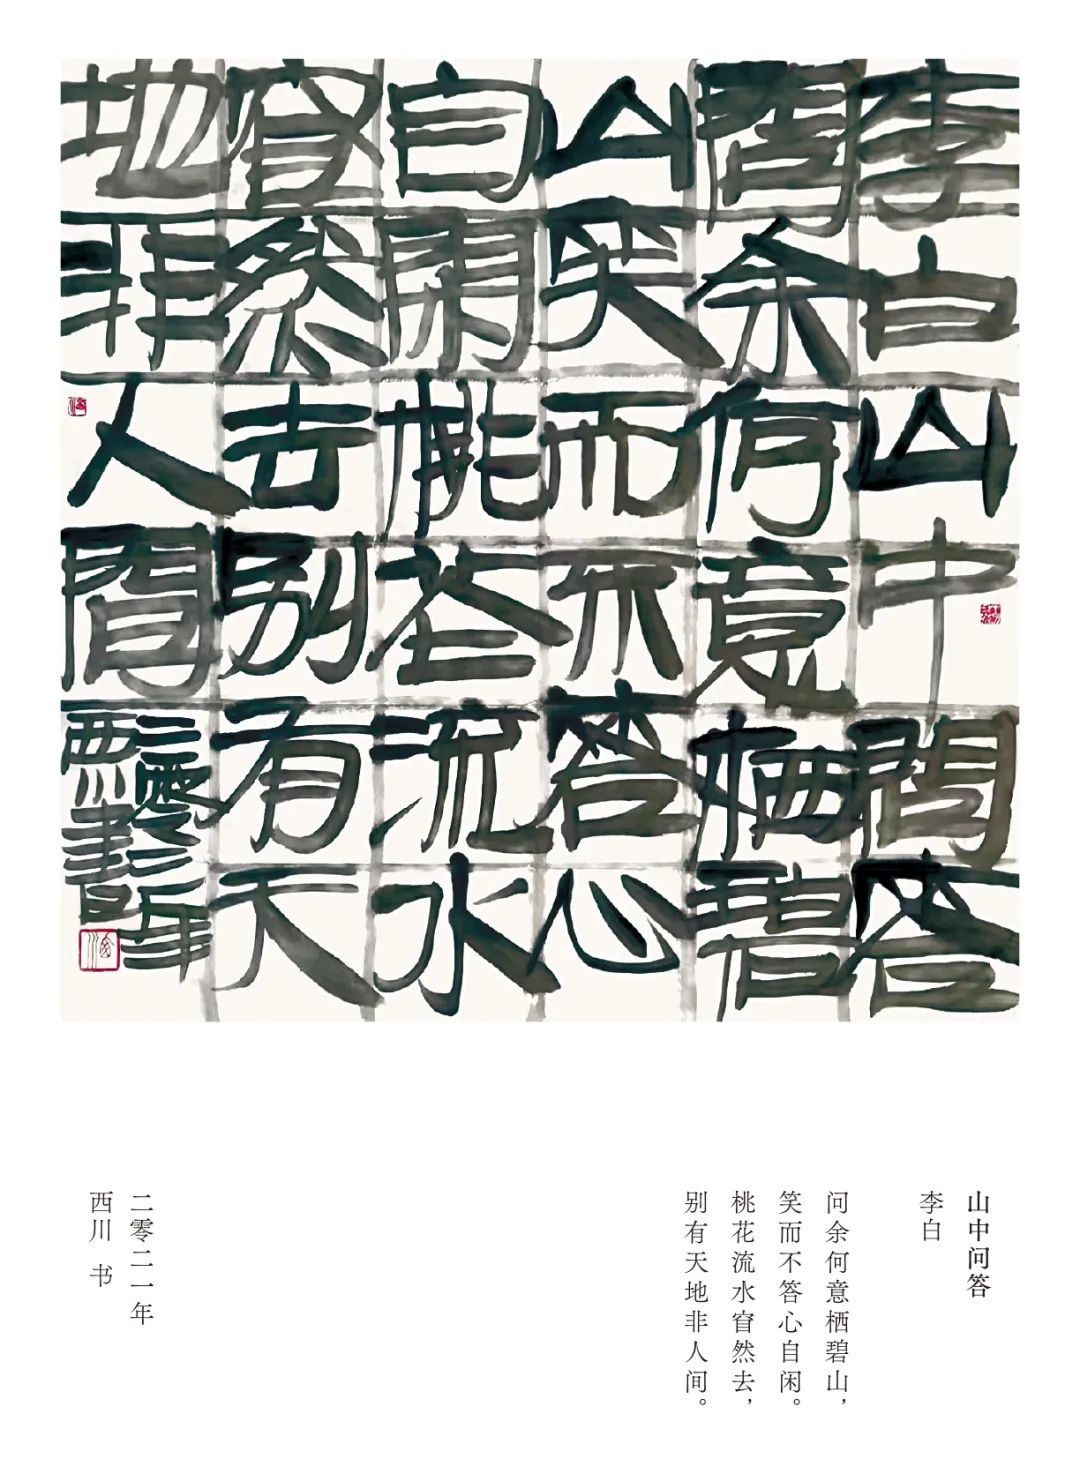 李白山中問答
問余何意栖碧
山笑而不答心
自閑桃花流水
窅然去别有天
地非人間
二零二一年
西川書
山中问答
李白
问余何意栖碧山，
笑而不答心自闲。
桃花流水窅然去，
别有天地非人间。
二零二一年
西川 书